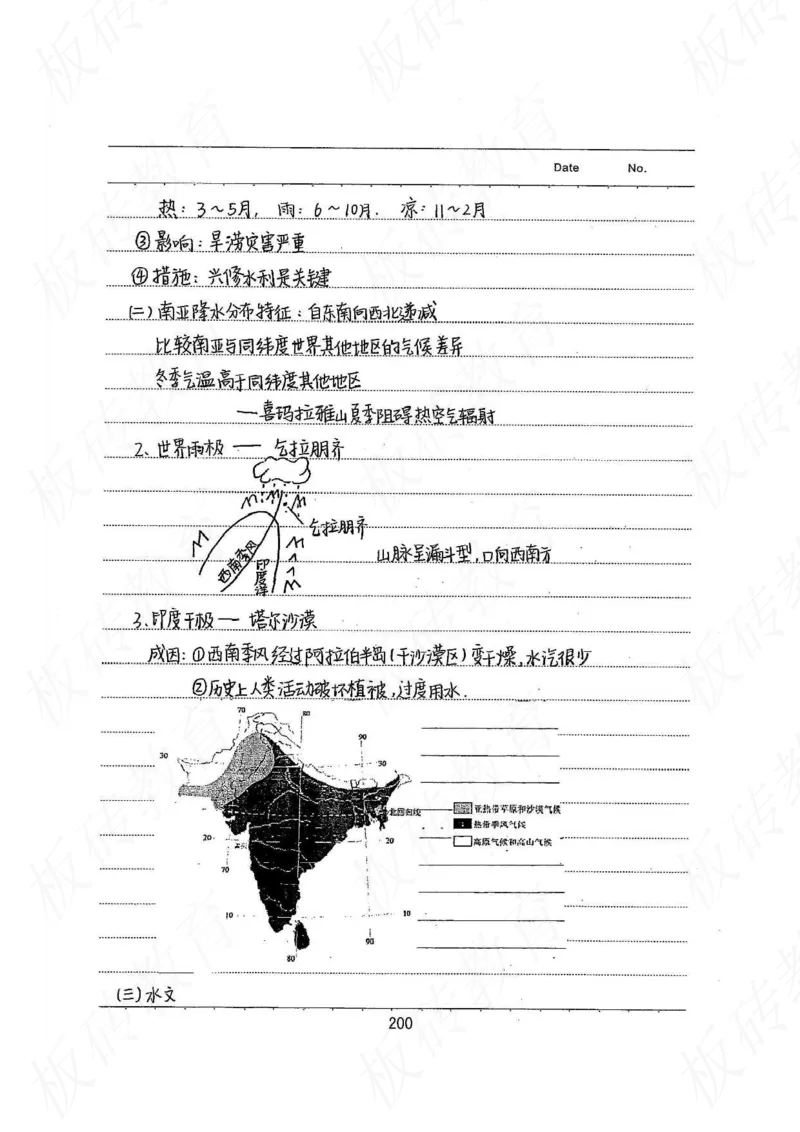 Date No.
热: 3～5月, 雨: 6～10月. 凉: 11～2月
③影响: 旱涝灾害严重
④措施: 兴修水利是关键
(二)南亚降水分布特征: 自东南向西北递减
比较南亚与同纬度世界其他地区的气候差异
冬季气温高于同纬度其他地区
—喜玛拉雅山夏季阻碍热空气辐射
2、世界雨极 — 乞拉朋齐
乞拉朋齐
西南季风
印度洋
山脉呈漏斗型,口向西南方
3、印度干极 — 塔尔沙漠
成因: ①西南季风经过阿拉伯半岛(干沙漠区)变干燥,水汽很少
②历史上人类活动破坏植被,过度用水.
70 80
90
30
30
北回归线
亚热带草原和沙漠气候
热带季风气候
高原气候和高山气候
20
孟买
20
70
10
10
90
80
(三)水文
200
板砖教育